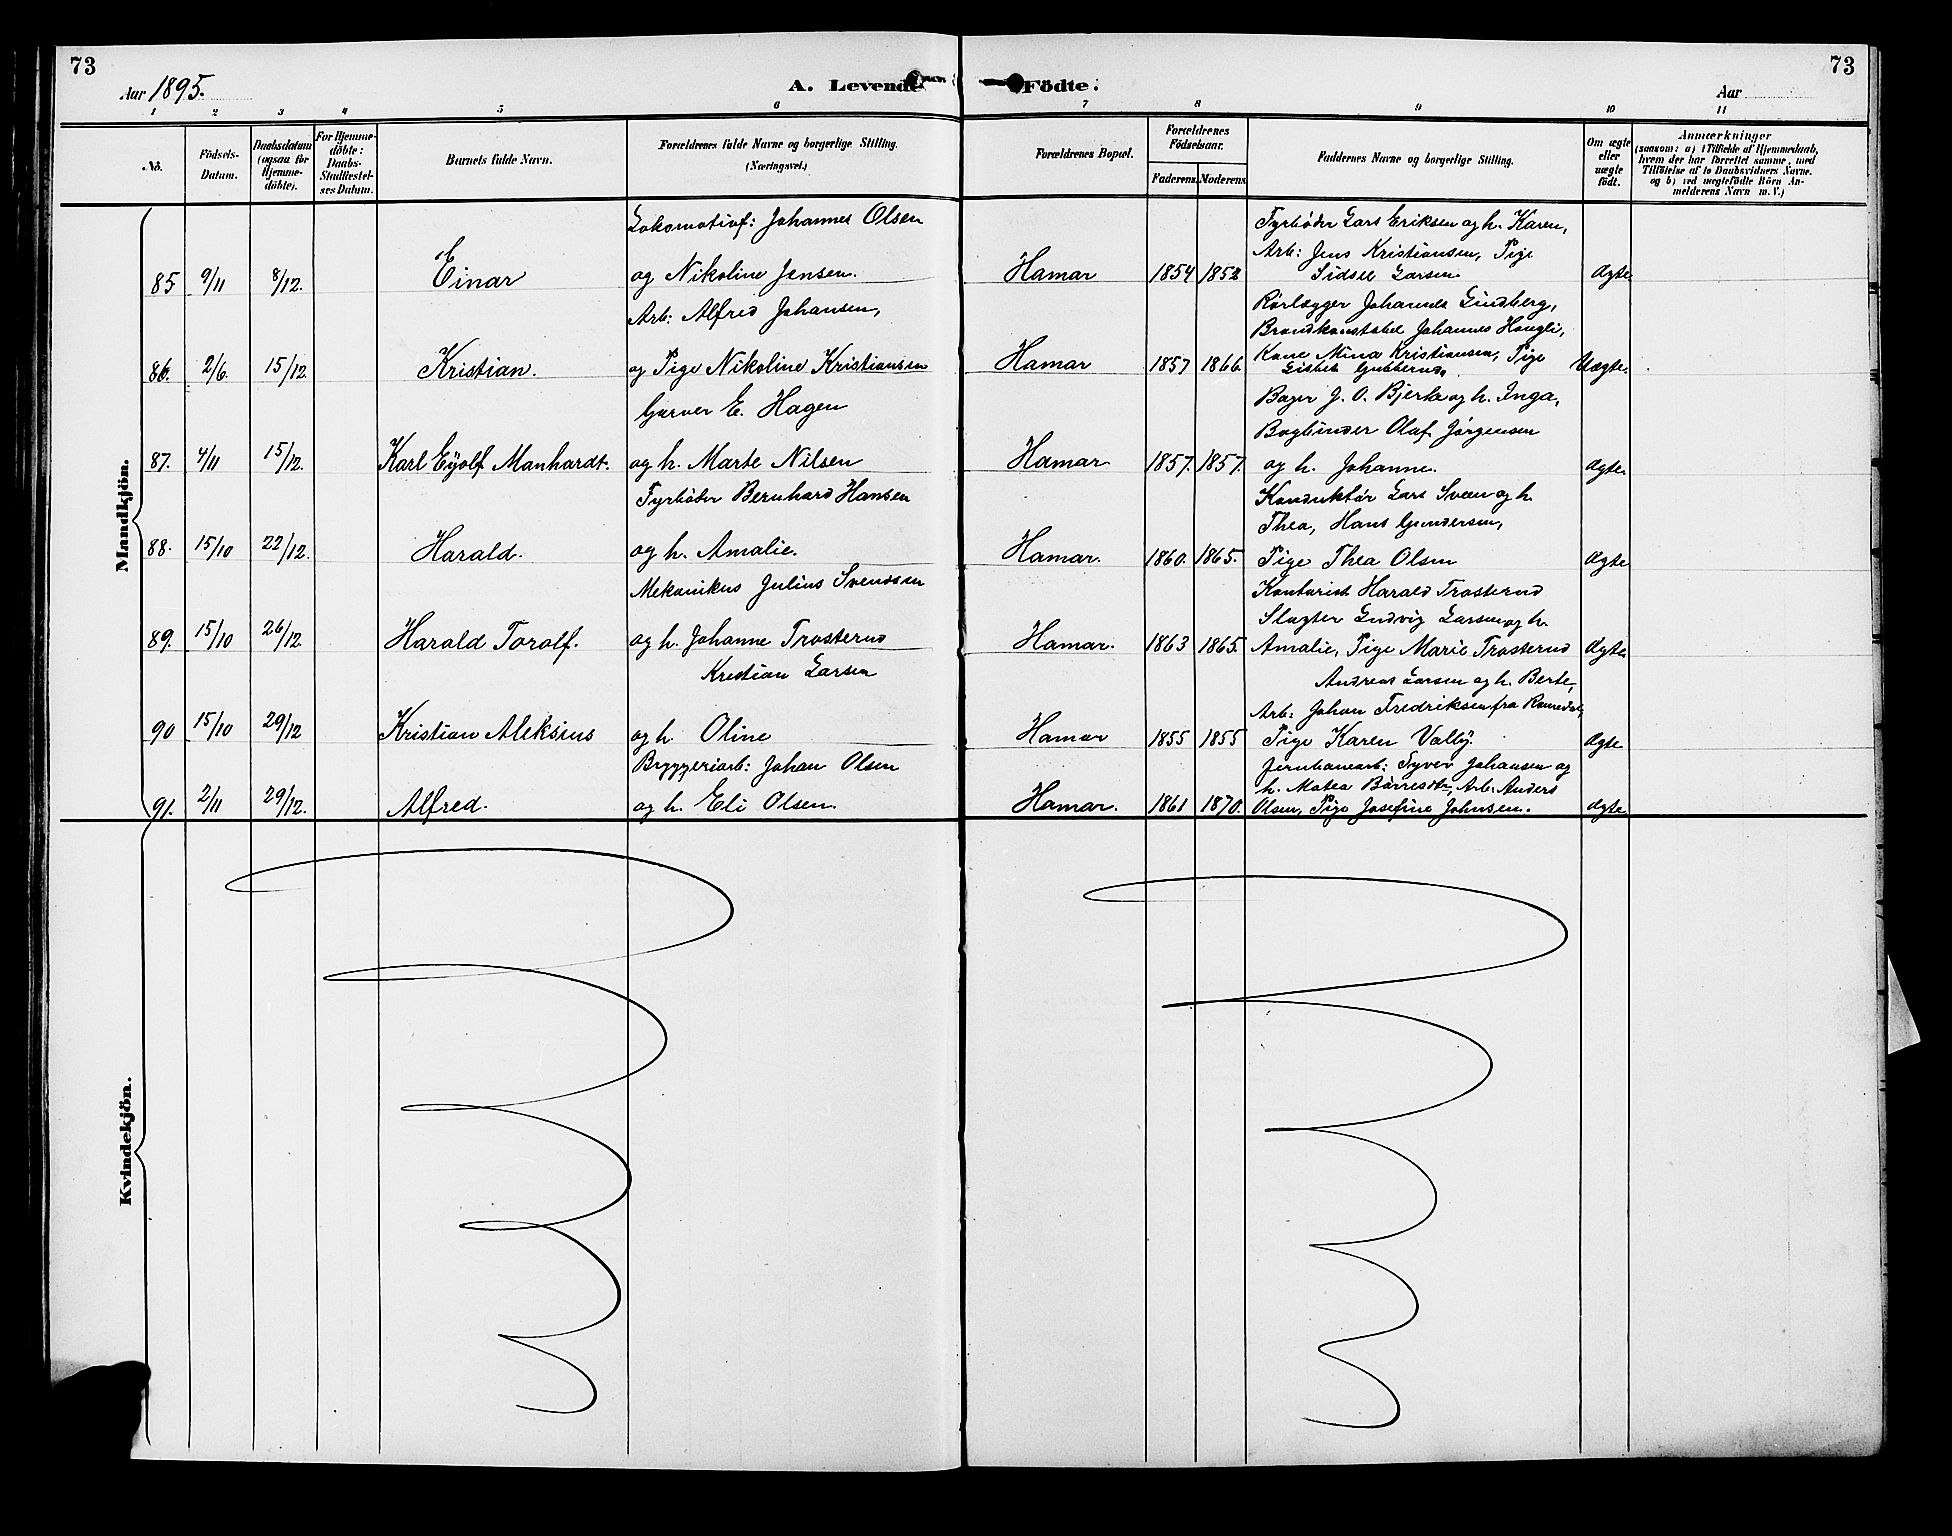 73
73
Aar 1895.
A. Levende Födte.
Aar
1 2 3 4 5 6 7 8 9 10 11
No.
Födsels-
Datum.
Daabsdatum
(ogsaa for
Hjemme-
döbte).
For Hjemme-
döbte:
Daabs-
Stadfæstel-
ses Datum.
Barnets fulde Navn.
Forældrenes fulde Navne og borgerlige Stilling.
(Næringsvei.)
Forældrenes Bopæl.
Forældrenes
Födselsaar.
Faderens. Moderens.
Faddernes Navne og borgerlige Stilling.
Om ægte
eller
uægte
födt.
Anmærkninger
(saasom: a) i Tilfælde af Hjemmedaab,
hvem der har forrettet samme, med
Tilföielse af to Daabsvidners Navne.
og b) ved uægtefödte Börn An-
melderens Navn m. V.)
Mandkjön.
Lokomotivf: Johannes Olsen
Fyrbøder Lars Eriksen og h. Karen,
Arb: Jens Kristiansen, Pige
85 9/11 8/12. Einar og Nikoline Jensen. Hamar 1854 1852 Sidsel Larsen. Ægte
Arb: Alfred Johansen,
Rørlægger Johannes Lindberg,
Brandkonstabel Johannes Hougli,
86. 2/6. 15/12. Kristian. og Pige Nikoline Kristiansen Hamar 1857 1866. Kone Mina Kristiansen, Pige Uægte.
Lisbet
Garver E. Hagen
Bager J. O. Bjerke og h. Inga,
Bogbinder Olaf Jørgensen
87. 4/11 15/12. Karl Eyolf Manhardt. og h. Marte Nilsen Hamar 1857. 1857. og h. Johanne. Ægte
Fyrbøder Bernhard Hansen
Konduktør Lars Sveen og h.
Thea, Hans Gundersen,
88. 15/10 22/12. Harald. og h. Amalie. Hamar. 1860. 1865. Pige Thea Olsen Ægte
Mekanikus Julius Svendsen
Kontorist Harald Trosterud
Slagter Ludvig Larsen og h.
89. 15/10 26/12. Harald Torolf. og h. Johanne Trosterud Hamar. 1863 1865. Amalie, Pige Marie Trosterud Ægte
Kristian Larsen
Andreas Larsen og h. Berte,
Arb: Johan Fredriksen fra Romedal,
90 15/10 29/12 Kristian Aleksius og h. Oline Hamar 1855 1855 Pige Karen Valby. Ægte
Bryggeriarb: Johan Olsen
Jernbanearb: Syver Johansen og
h. Matea Børresdtr, Arb: Anders
91. 2/11 29/12. Alfred. og h. Eli Olsen. Hamar. 1861 1870. Olsen, Pige Josefine Johnsen. Ægte
Kvindekjön.